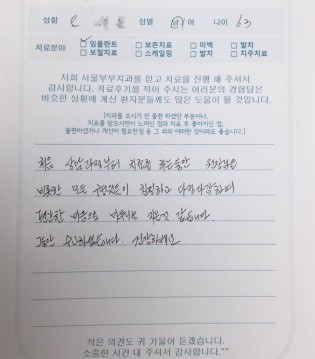 성함 성별 남/여 나이 63
치료분야 임플란트 보존치료 미백 발치
보철치료 스케일링 발치 치주치료
저희 서울부부치과를 믿고 치료를 진행 해 주셔서
감사합니다. 치료후기를 적어 주시는 여러분의 경험담은
비슷한 상황에 계신 환자분들께도 많은 도움이 될 것입니다.
[치과를 오시기 전 불편 하셨던 부분이나,
치료를 받으시면서 느끼신 점과 치료 후 좋아지신 점,
불편하셨거나 개선이 필요한점 등 그 외의 어떠한 것이라도 좋습니다.]
처음 상담과정부터 치료를 하는동안 원장님을
비롯한 모든 구성원이 친절하고 자상하며
편안한 마음으로 치료를 받은것 같습니다.
그동안 수고하셨습니다. 건강하세요
작은 의견도 귀 기울여 듣겠습니다.
소중한 시간 내 주셔서 감사합니다.^^